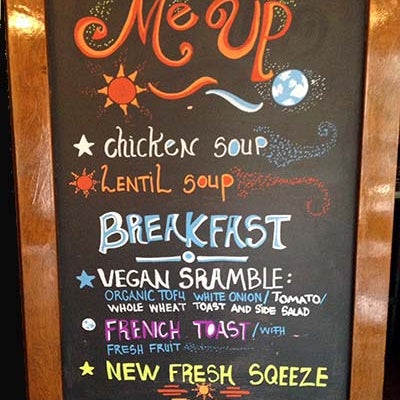 Me Up
chicken soup
LENTIL SOUP
BREAKFAST
VEGAN SRAMBLE:
ORGANIC TOFU WHITE ONION/TOMATO/
WHOLE WHEAT TOAST AND SIDE SALAD
FRENCH TOAST/WITH
FRESH FRUIT
NEW FRESH SQEEZE